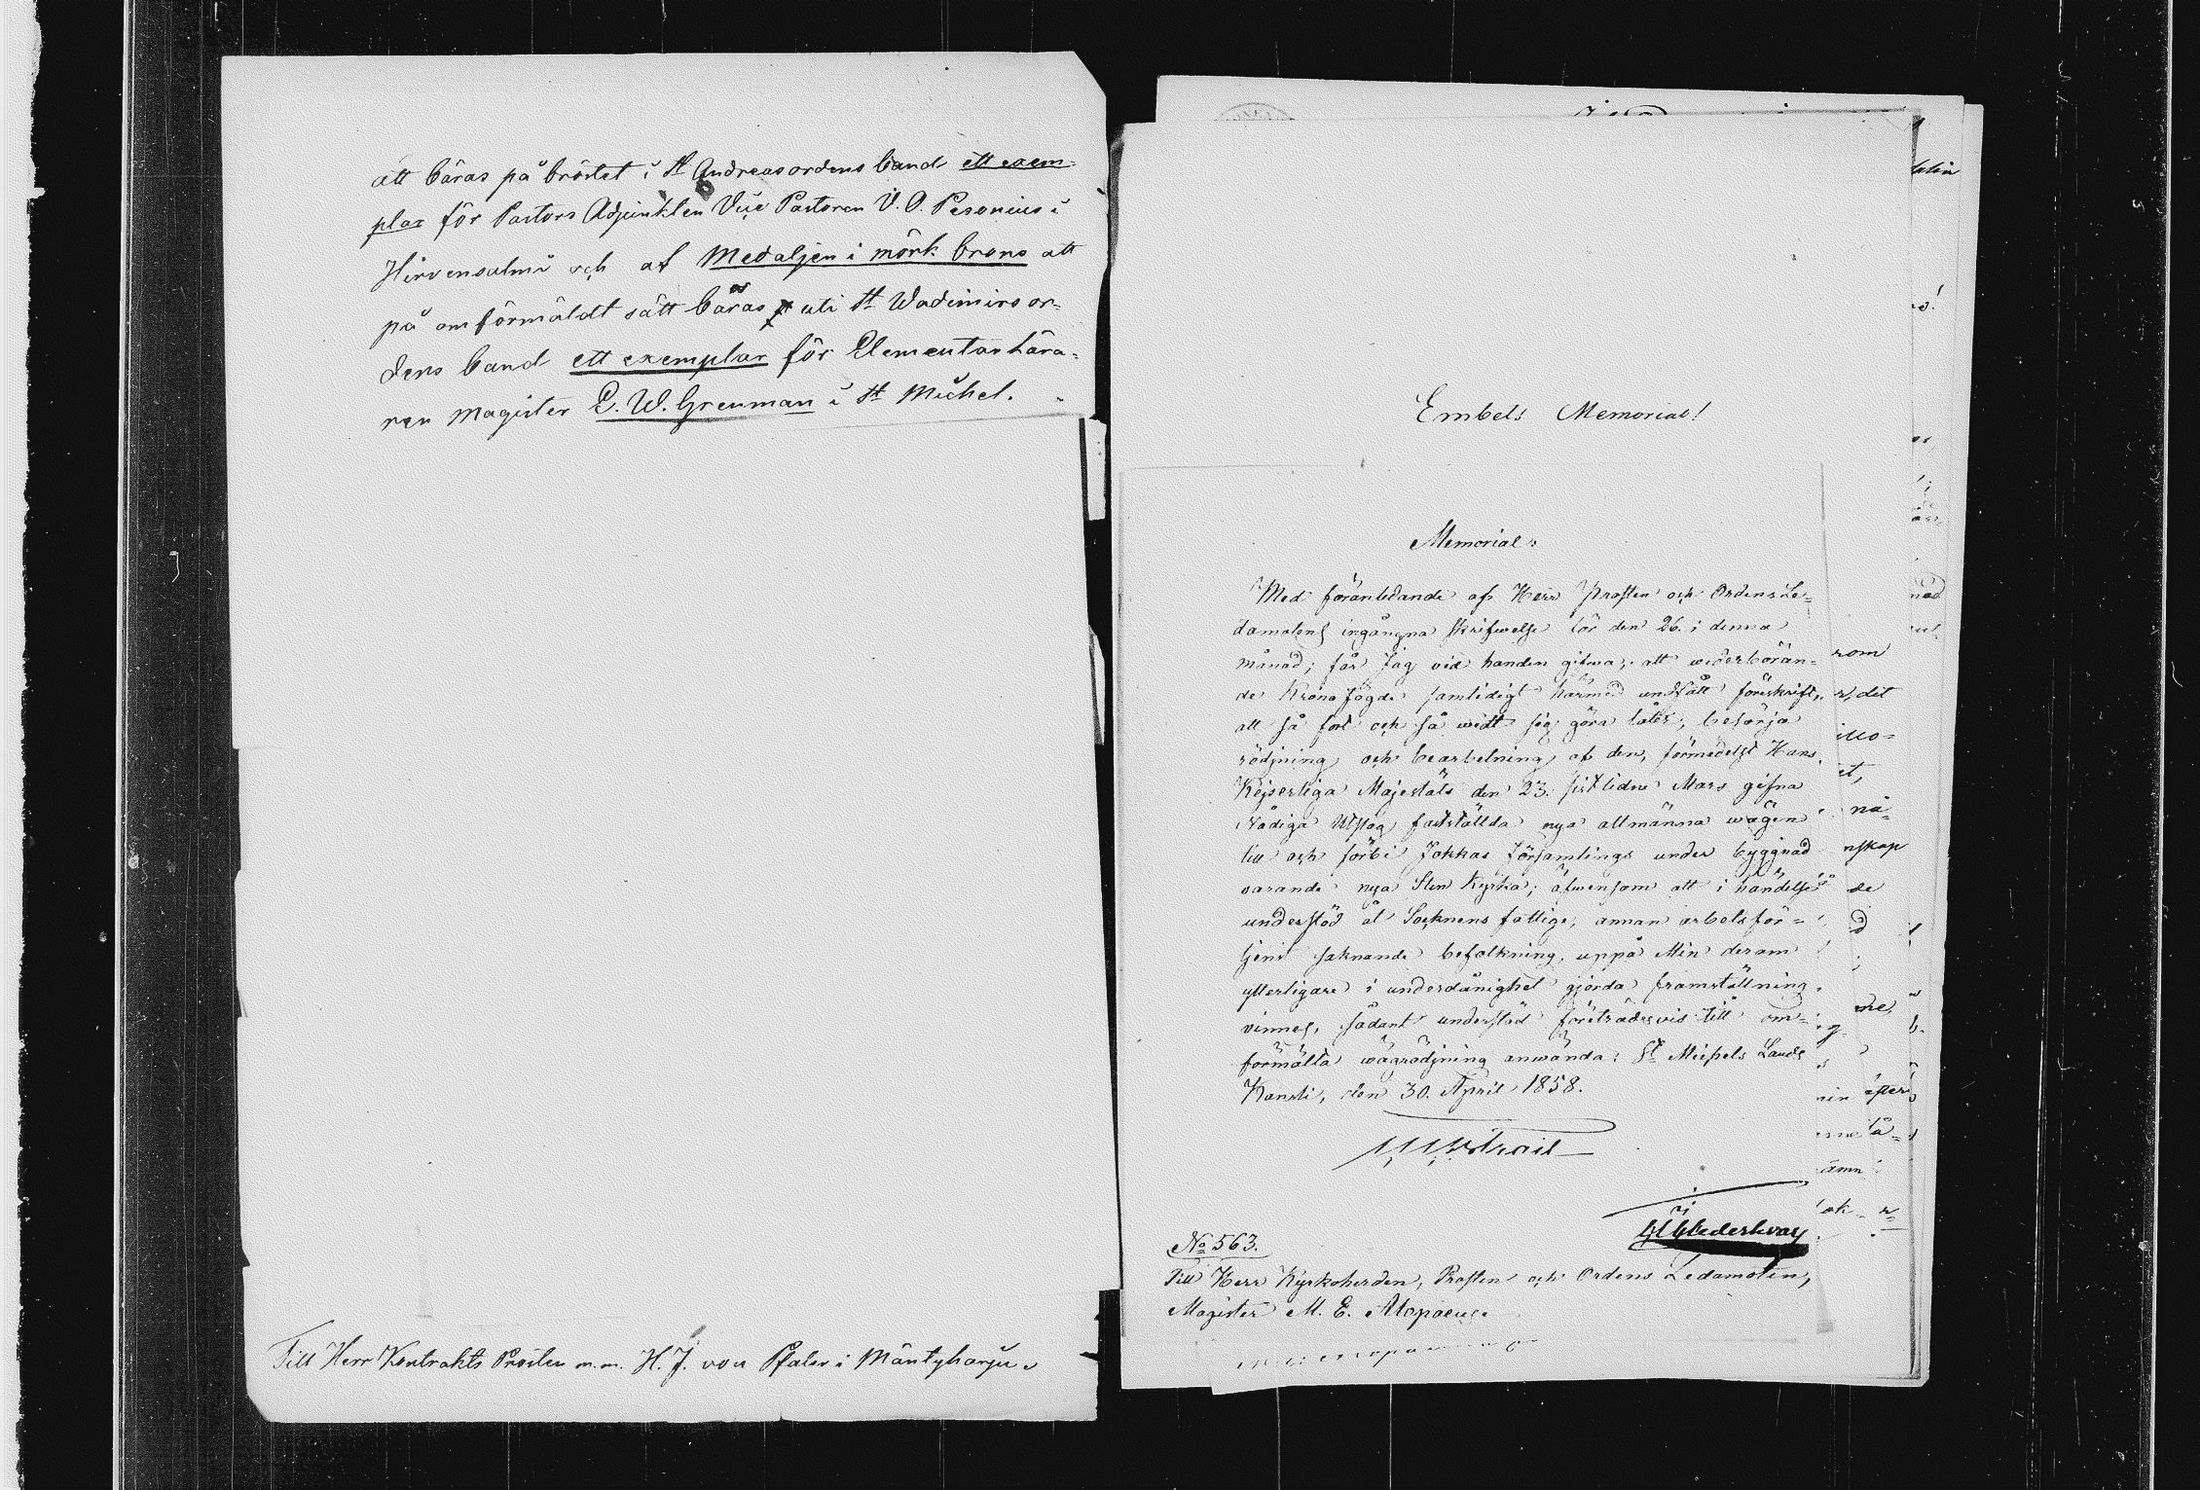 att bäras på bröstet i St Andreasordens band ett exem-
plar för Pastors Adjunkten Vice Pastoren V. O. Pesonius i
Hirvensalmi och af Medaljen i mörk brons att
på omförmäldt sätt bäras uti St Wadimirs or-
dens band ett exemplar för Elementarlära-
ren Magister E. W. Grenman i St Michel.
Till Herr Kontrakts Prosten m.m. H. J. von Pfaler i Mäntyharju.
Embets Memorial!
Memorial:
Med föranledande af Herr Prosten och Ordens Le-
damotens ingångna skrifwelse för den 26. i denna
månad; får Jag vid handen gifwa; att wederbörån-
de Krono Fogde samtidigt härmed undfått föreskrift,
att så fort och så widt sig göra låter, besörja
rödjning och bearbetning af den, förmedelst Hans
Kejserliga Majestäts den 23. sistlidne Mars gifna
Nådiga Utslag fastställda nya allmänna wägen
till och förbi Jokkas Församlings under byggnad
varande nya Sten Kyrka; äfwensom att i händelse
understöd åt Socknens fattige, annan arbetsför-
tjenst saknande befolkning, uppå Min derom
ytterligare i underdånighet gjorda framställning
vinnes, sådant understöd företrädesvis till om-
förmälta wägrödjning anwända: St Michels Lands
Kansli, den 30. April 1858.
No 563.
Till Herr Kyrkoherden, Prosten och Ordens Ledamoten,
Magister M. E. Alopaeus.